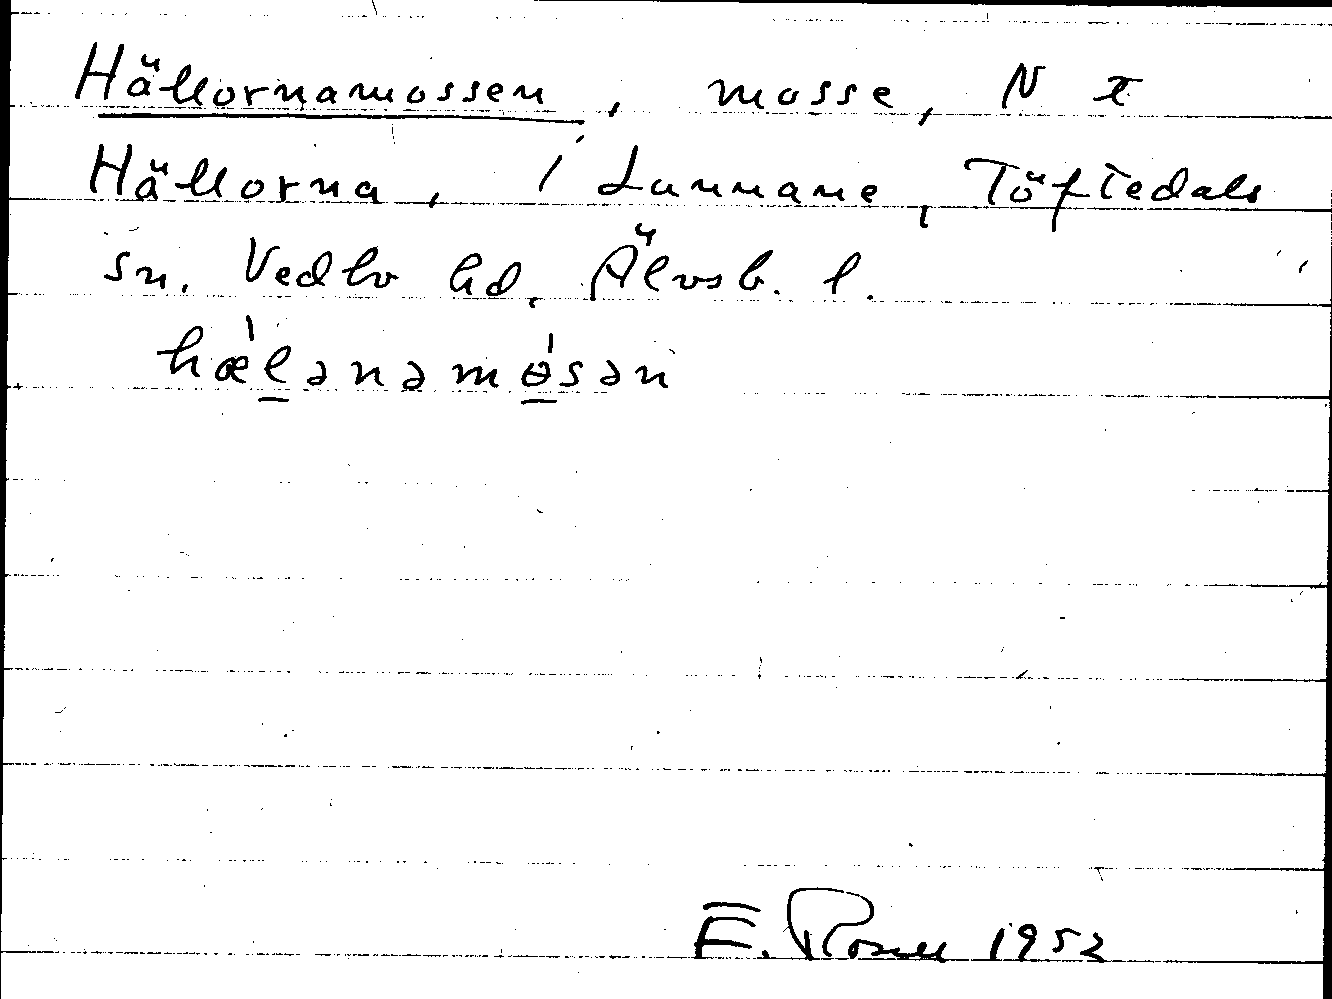 Hällornamossen, mosse, N I
Hällorna, i Lunnane, Töftedals
sn. Vedbo hd. Älvsb. l.
hæ̍l̲ənəmɵ̲̍sən
E. Rosell 1952